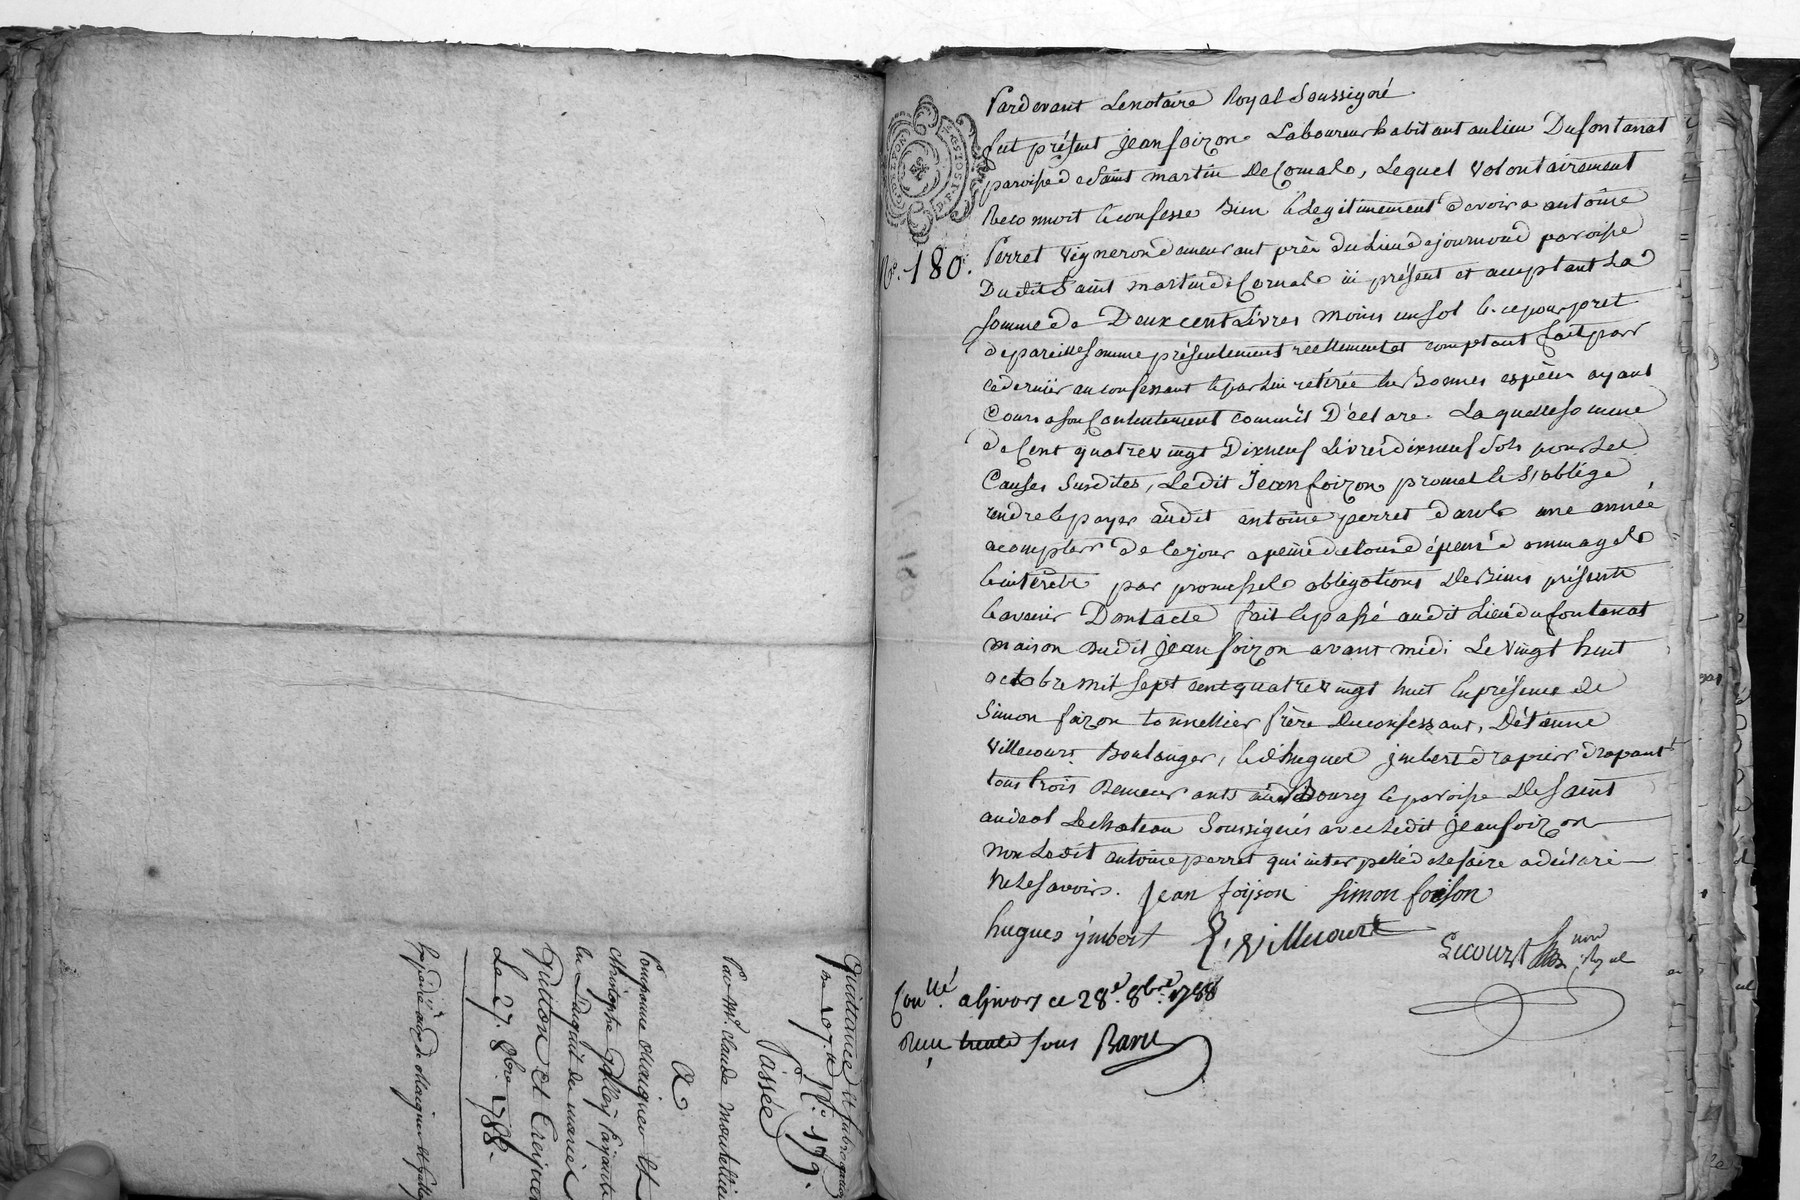 Quittance et subrogation
N.o 179.
Passée
Par Mr. Claude
A
Pomponne Maigner et
Christophe
Le 27. 8bre. 1788.
Pardevant Le notaire Royal Soussigné
fut présent jean foizon Laboureur habitant au lieu Du fontanat
paroisse de Saint martin De Cornas, Lequel volontairement
Reconnoit & confesse Bien & Legitimement devoir a antoine
Perret vigneron demeurant près du Lieu de journoud paroisse
Dudit Saint martin de Cornas ici présent et acceptant La
somme de Deux cent Livres moins un sol & ce pour pret
de pareille somme présentement reellement et comptant fait par
ce dernier au confessant & par Lui retirée en Bonnes espèces ayant
Cours a son Contentement comm'il Déclare. La quelle somme
de Cent quatre vingt Dixneuf Livres dixneuf sols pour Les
Causes Susdites, Ledit Jean foizon promet & s'oblige
rendre & payer audit antoine perret dans une année
a compter de ce jour a peine de tous dépens dommages
& intérêts par promesses obligations De Biens présents
& avenir Dont acte fait & passé audit Lieu du fontanat
maison dudit jean foizon avant midi Le vingt huit
octobre mil sept cent quatre vingt huit En présence de
Simon foizon tonnellier frère du confessant, D'étienne
villecourt Boulanger, & d'hugues jmbert drapier drapant
tous trois Demeurants audit Bourg & paroisse De Saint
andeol Le chateau Soussignés avec Ledit jean foizon
non Ledit antoine perret qui interpellé de Le faire a déclaré
ne Le savoir. Jean foijson Simon foison
hugues ymbert E, villecourt
Lecourt nore Royal
No. 180.
Conllé. a Givors ce 28e. 8bre. 1788
Reçu sous Baru